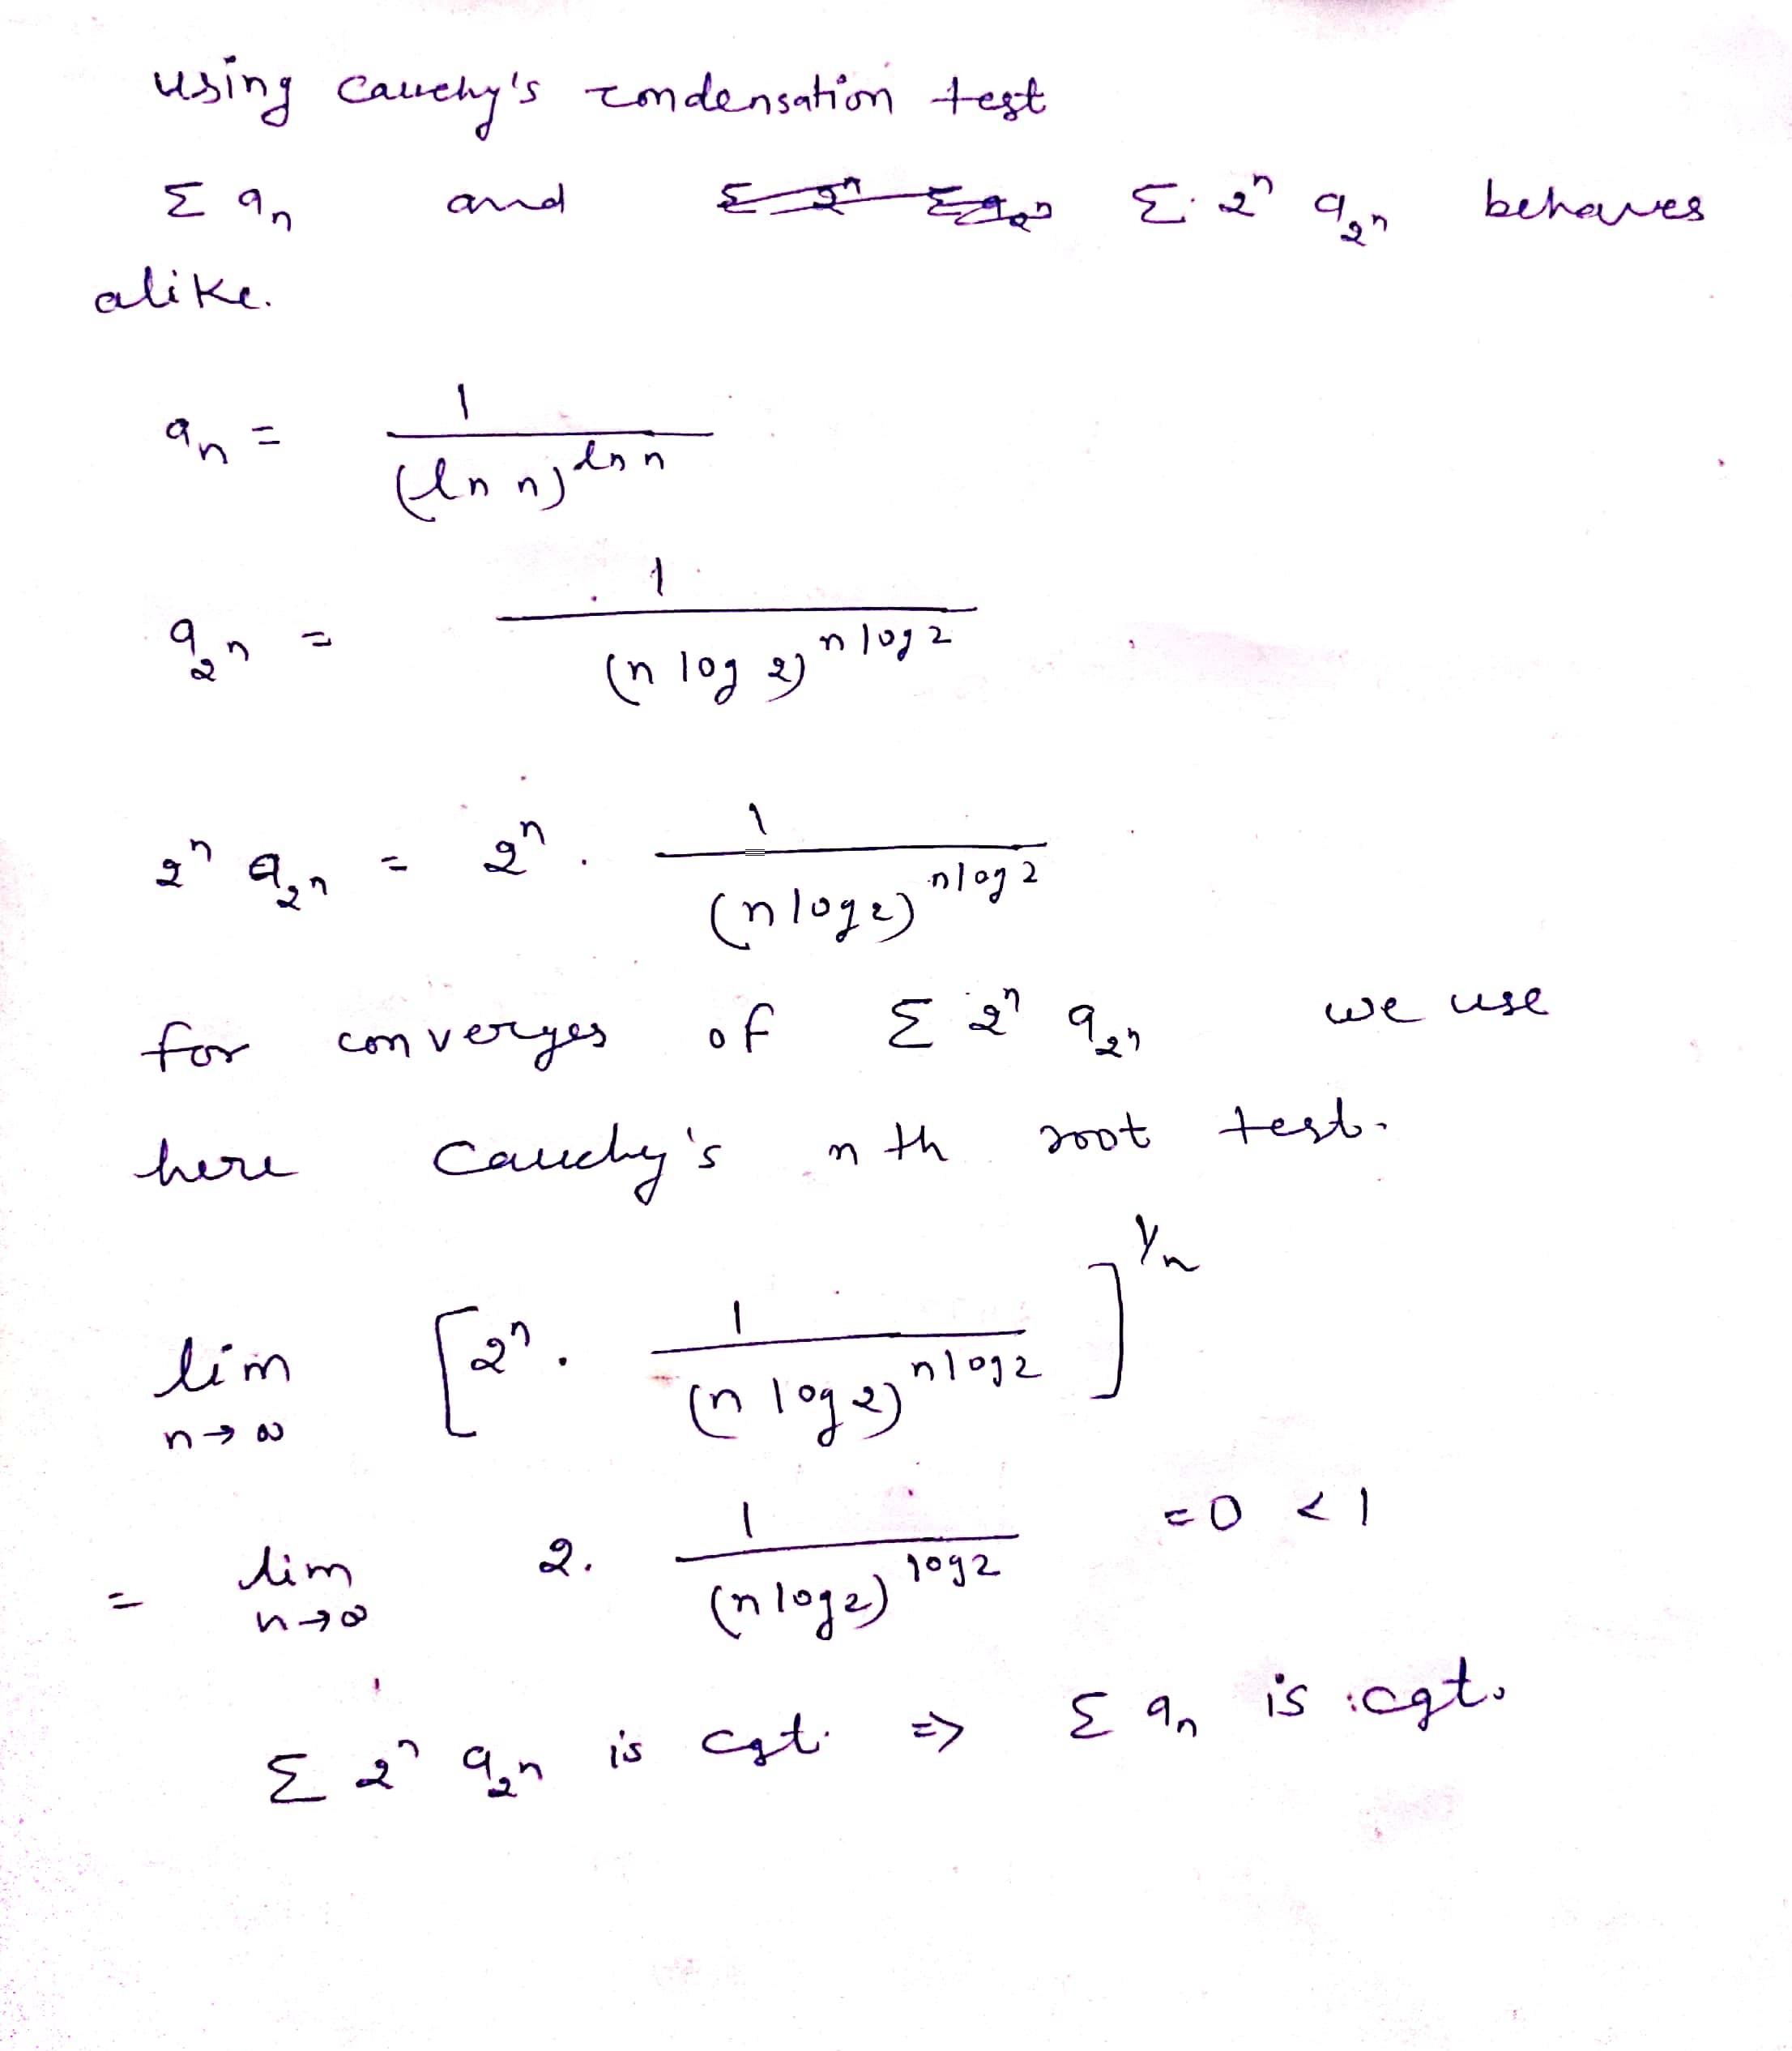 using Cauchy's condensation test
Σ aₙ and Σ 2ⁿ a_{2ⁿ} behaves
alike.
aₙ = 1 / (ln n)^{ln n}
a_{2ⁿ} = 1 / (n log 2)^{n log 2}
2ⁿ a_{2ⁿ} = 2ⁿ . 1 / (n log 2)^{n log 2}
for converges of Σ 2ⁿ a_{2ⁿ} we use
here Cauchy's n th root test.
lim n→∞ [2ⁿ . 1 / (n log 2)^{n log 2}]^{1/n}
= lim n→∞ 2. 1 / (n log 2)^{log 2} = 0 < 1
Σ 2ⁿ a_{2ⁿ} is cgt. ⇒ Σ aₙ is cgt.